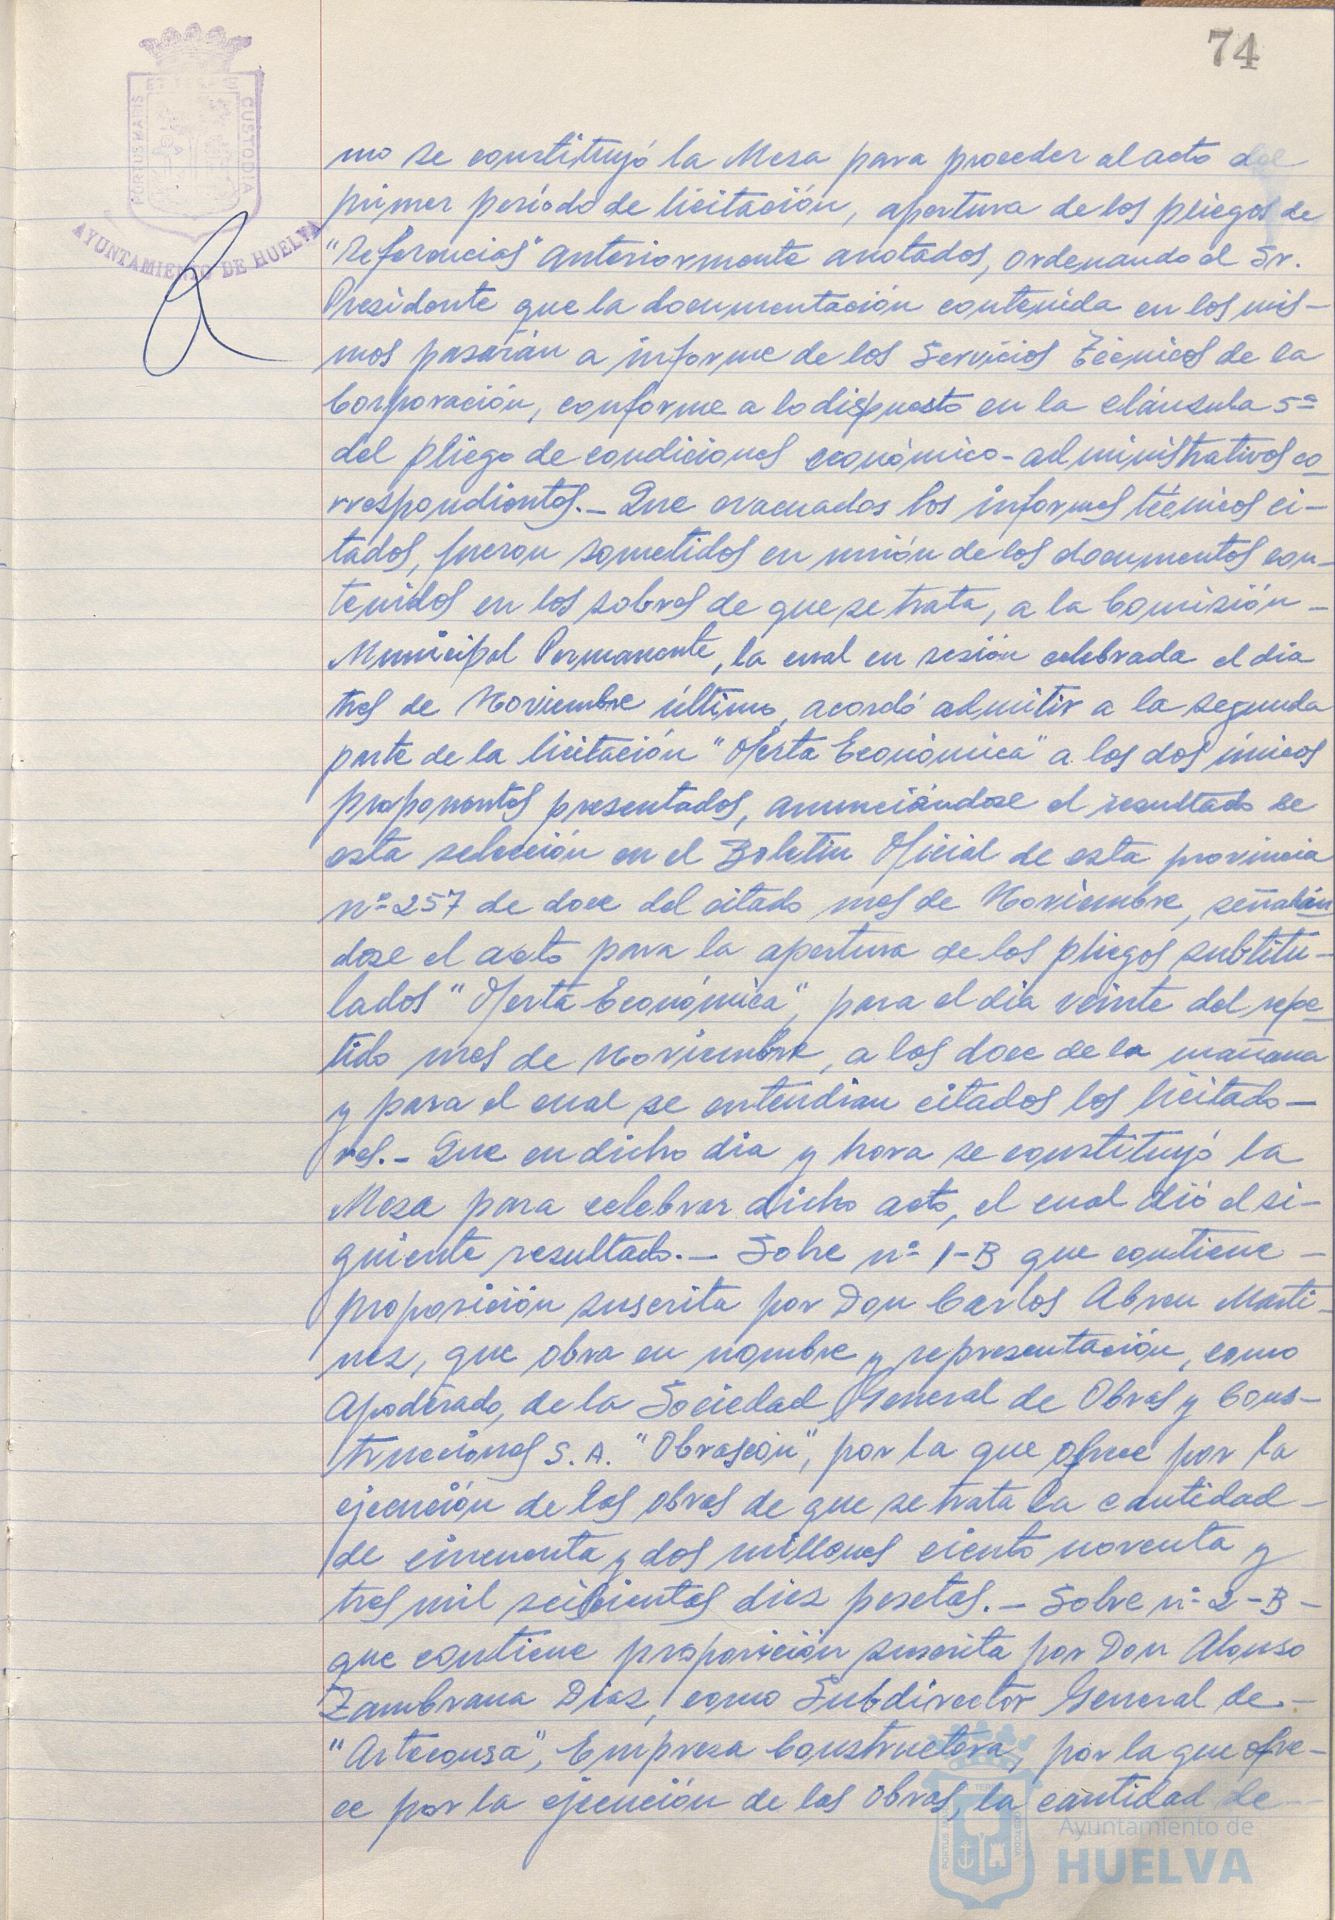 74
PORTUS MARIS
CUSTODIA
AYUNTAMIENTO DE HUELVA
mo se constituyó la Mesa para proceder al acto del
primer período de licitación, apertura de los pliegos de
"Referencias" anteriormente anotados, ordenando el Sr.
Presidente que la documentación contenida en los mis-
mos pasarán a informe de los Servicios Técnicos de la
Corporación, conforme a lo dispuesto en la cláusula 5ª
del pliego de condiciones económico-administrativas co-
rrespondientes.- Que evacuados los informes técnicos ci-
tados, fueron sometidos en unión de los documentos con-
tenidos en los sobres de que se trata, a la Comisión -
Municipal Permanente, la cual en sesión celebrada el dia
tres de Noviembre último, acordó admitir a la segunda
parte de la licitación "Oferta Económica" a los dos únicos
proponentes presentados, anunciándose el resultado de
esta selección en el Boletín Oficial de esta provincia
nº 257 de doce del citado mes de Noviembre, señalán
dose el acto para la apertura de los pliegos subtitu-
lados "Oferta Económica", para el dia veinte del repe-
tido mes de Noviembre, a las doce de la mañana
y para el cual se entendian citados los licitado-
res.- Que en dicho dia y hora se constituyó la
Mesa para celebrar dicho acto, el cual dió el si-
guiente resultado.- Sobre nº 1-B que contiene -
proposición suscrita por Don Carlos Abreu Marti-
nez, que obra en nombre y representación, como
Apoderado, de la Sociedad General de Obras y Cons-
trucciones S.A. "Obrascón", por la que ofrece por la
ejecución de las obras de que se trata la cantidad -
de cincuenta y dos millones ciento noventa y
tres mil seiscientas diez pesetas.- Sobre nº 2-B -
que contiene proposición suscrita por Don Alonso
Zambrana Diaz, como Subdirector General de -
"Arteconsa", Empresa Constructora, por la que ofre-
ce por la ejecución de las obras, la cantidad de --
Ayuntamiento de
HUELVA